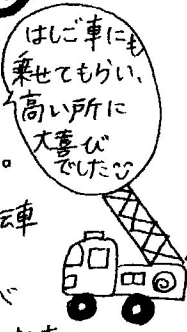 はしご車にも
乗せてもらい、
高い所に
大喜び
でした